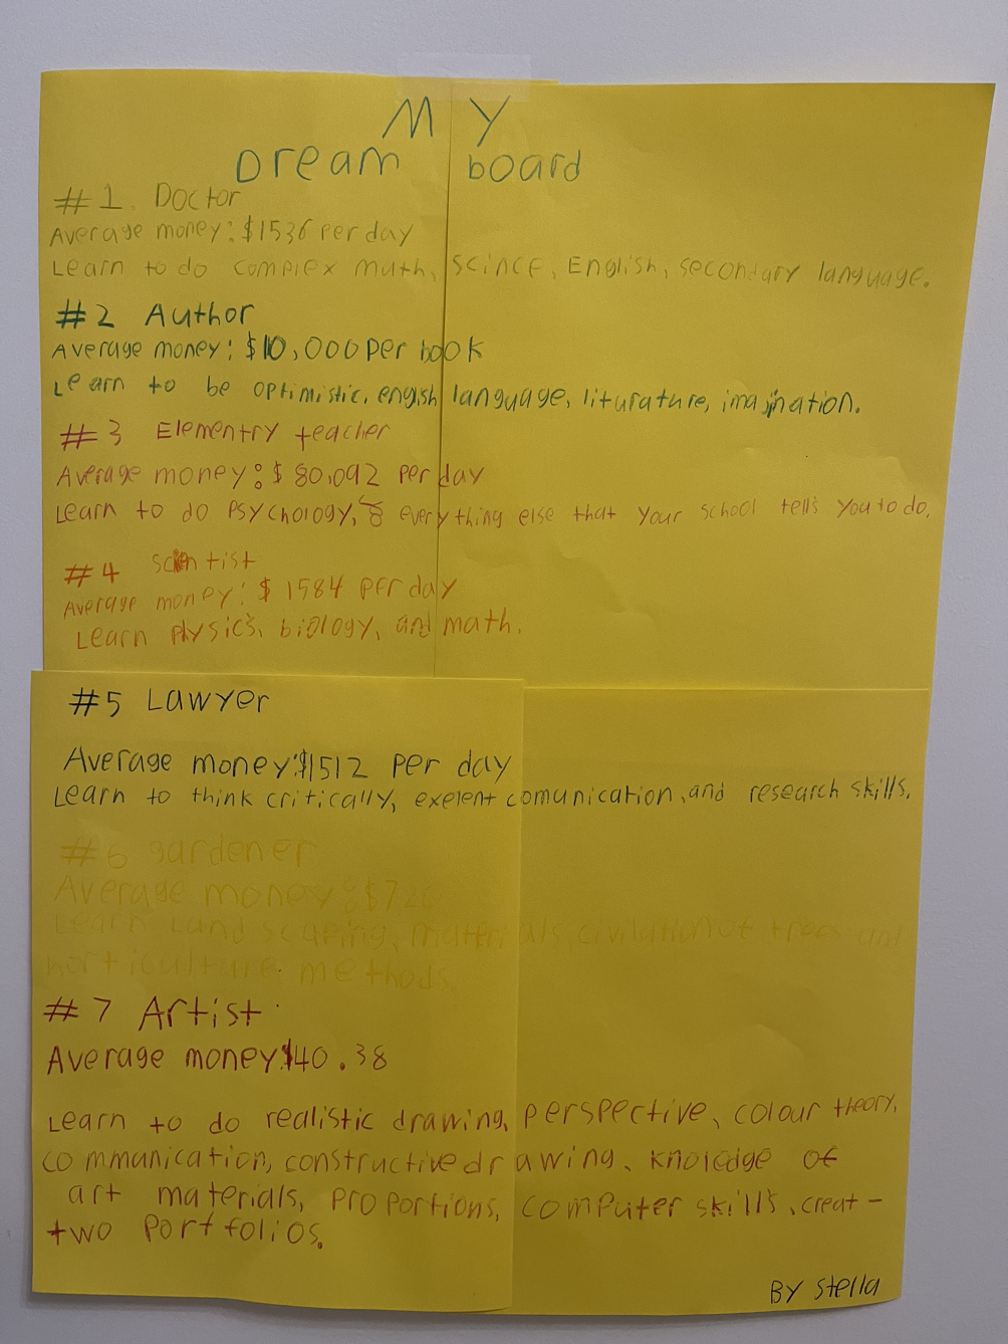 MY
Dream board
#1. Doctor
Average money: $1536 per day
Learn to do complex math, scince, English, secondary language.
#2 Author
Average money: $10,000 per book
Learn to be optimistic, engish language, liturature, imajination.
#3 Elementry teacher
Average money: $80,092 per day
Learn to do psychology, & everything else that your school tells you to do.
#4 scientist
Average money: $1584 per day
Learn physics, biology, and math.
#5 Lawyer
Average money: $1512 per day
Learn to think critically, exelent comunication, and research skills.
#6 gardener
Average money: $72
Learn Land scaping, materials, of trees and
horticulture methods.
#7 Artist
Average money $40.38
Learn to do realistic drawing, perspective, colour theory,
communication, constructive drawing, knoledge of
art materials, proportions, computer skills, creat-
two portfolios.
BY stella